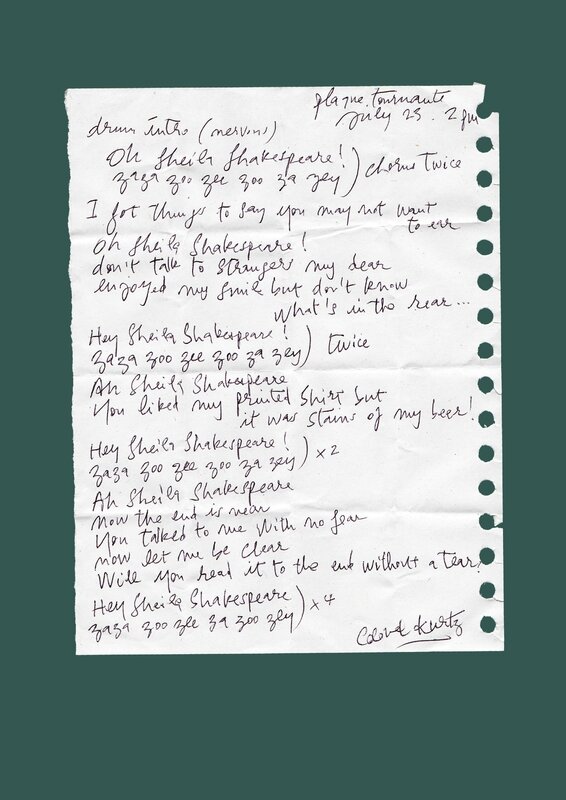 plaque tournante
July 23. 2pm
drum intro (nervous)
Oh Sheila Shakespeare!
zaza zoo zee zoo za zey) chorus twice
I got things to say you may not want
to ear
Oh Sheila Shakespeare!
don't talk to strangers my dear
enjoyed my smile but don't know
what's in the rear...
Hey Sheila Shakespeare!
zaza zoo zee zoo za zey) twice
Ah Sheila Shakespeare
You liked my printed shirt but
it was stains of my beer!
Hey Sheila Shakespeare!
zaza zoo zee zoo za zey) x 2
Ah Sheila Shakespeare
now the end is near
You talked to me with no fear
now let me be clear
Will you read it to the end without a tear?
Hey Sheila Shakespeare
zaza zoo zee za zoo zey) x 4
Colonel Kurtz